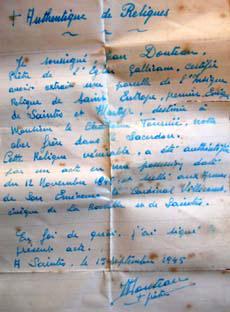 + Authentique de Reliques
Je soussigné Jean Douteau,
Prêtre de l'Eglise Gallicane, certifie
avoir extrait une parcelle de l'Insigne
Relique de Saint Eutrope, premier Evêque
de Saintes et Martyr, destinée à
Monsieur le Chanoine notre
cher frère dans le Sacerdoce.
Cette Relique vénérable a été authentifiée
par un acte en possession, daté
du 12 Novembre et scellé aux Armes
de Son Eminence le Cardinal Villecourt
évêque de La Rochelle et de Saintes.
En foi de quoi, j'ai signé le
présent acte.
A Saintes, le 15 septembre 1945
prêtre